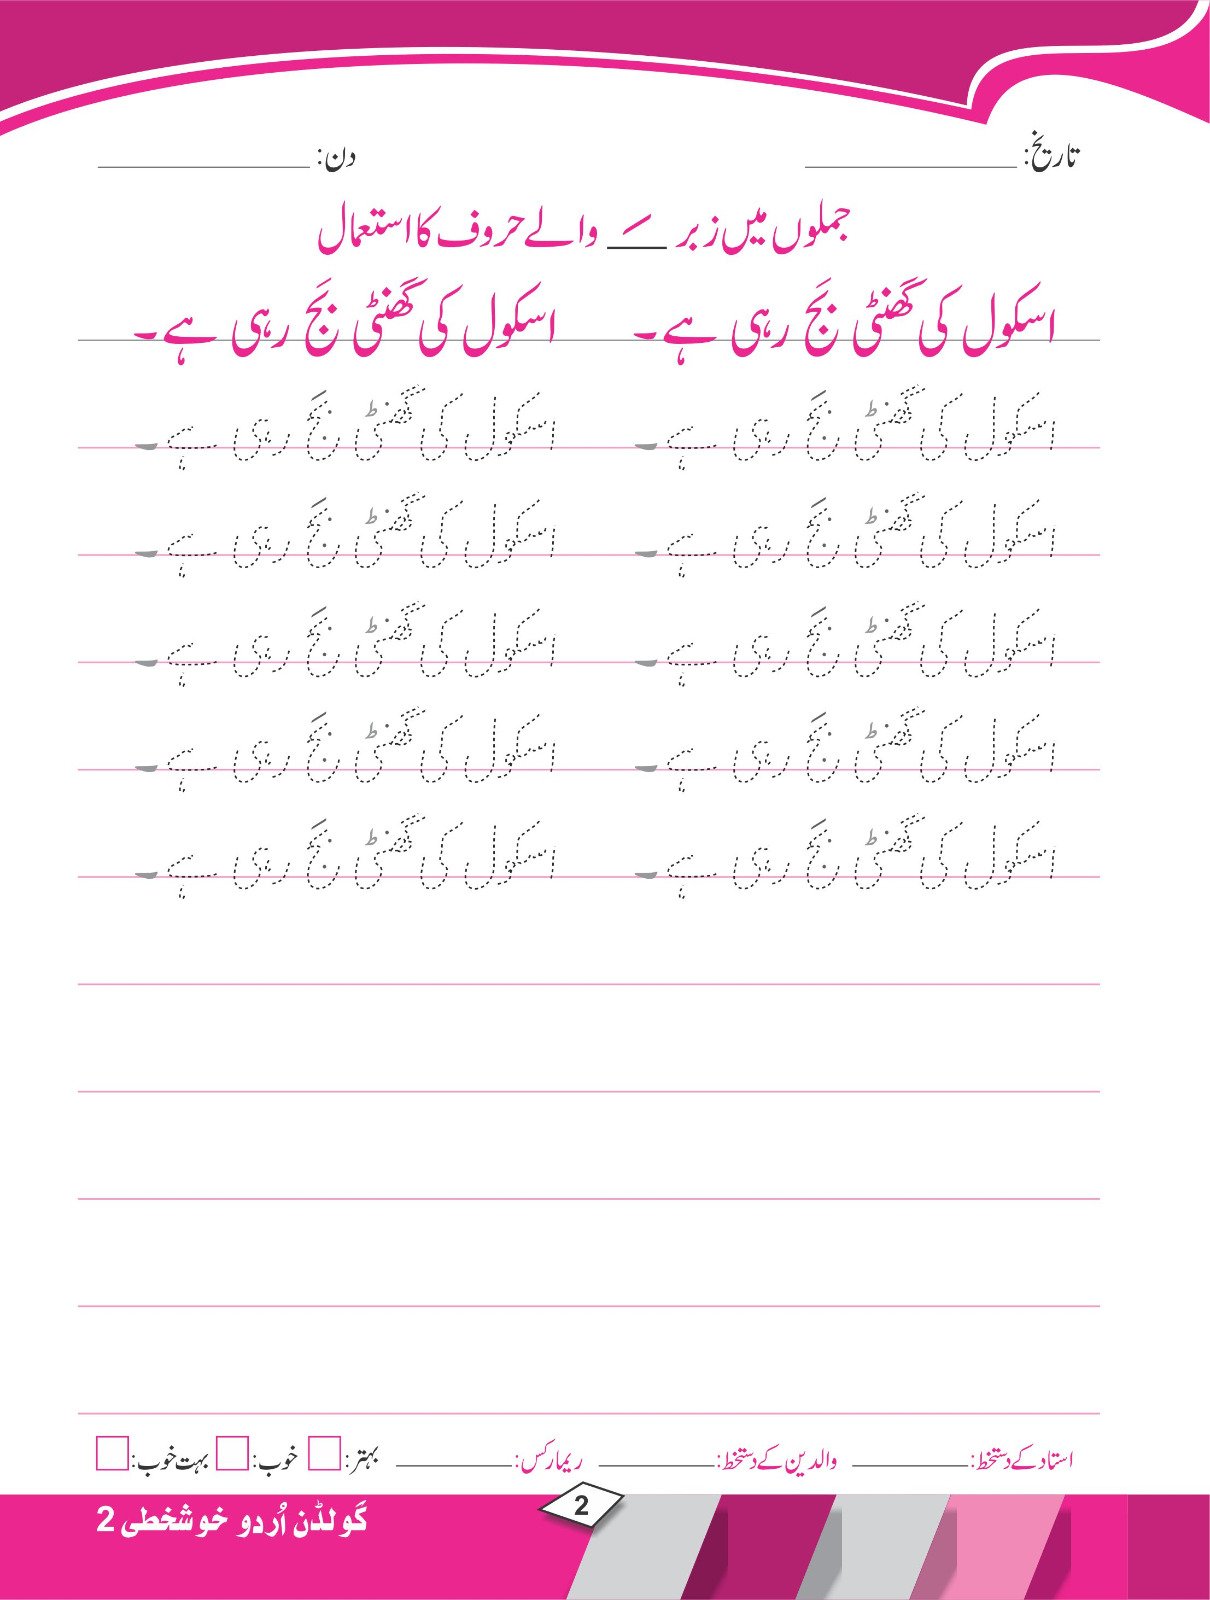 تاریخ: ____________ دن: ____________
جملوں میں زبر ـَ والے حروف کا استعمال
اسکول کی گھنٹی بَج رہی ہے۔ اسکول کی گھنٹی بَج رہی ہے۔
اسکول کی گھنٹی بَج رہی ہے۔ اسکول کی گھنٹی بَج رہی ہے۔
اسکول کی گھنٹی بَج رہی ہے۔ اسکول کی گھنٹی بَج رہی ہے۔
اسکول کی گھنٹی بَج رہی ہے۔ اسکول کی گھنٹی بَج رہی ہے۔
اسکول کی گھنٹی بَج رہی ہے۔ اسکول کی گھنٹی بَج رہی ہے۔
اسکول کی گھنٹی بَج رہی ہے۔ اسکول کی گھنٹی بَج رہی ہے۔
استاد کے دستخط: ________ والدین کے دستخط: ________ ریمارکس: ________ بہتر: خوب: بہت خوب:
2
گولڈن اُردو خوشخطی 2